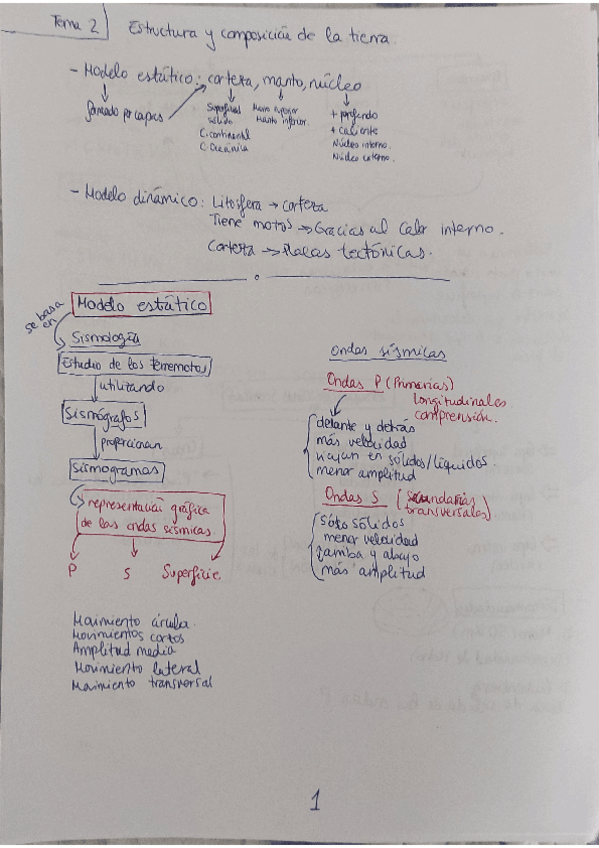 Tema 2
Estructura y composición de la tierra.
- Modelo estático: corteza, manto, núcleo
formado por capas
Superficial
sólida
C. continental
C. Oceánica
Manto superior
Manto inferior.
+ profundo
+ caliente
Núcleo interno.
Núcleo externo.
- Modelo dinámico: Litosfera → corteza
Tiene motos → Gracias al calor interno.
Corteza → Placas tectónicas.
Modelo estático
se basa en
Sismología
Estudio de los terremotos
utilizando
Sismógrafos
proporcionan
sismogramas
representación gráfica
de las ondas sísmicas.
P S Superficie.
Movimiento circular.
Movimientos cortos
Amplitud media
Movimiento lateral
Movimiento transversal
Ondas sísmicas
Ondas P (Primarias)
longitudinales
comprensión.
delante y detrás
más velocidad
viajan en sólidos/líquidos.
menor amplitud
Ondas S (secundarias
transversales)
sólo sólidos
menor velocidad
arriba y abajo
más amplitud
1